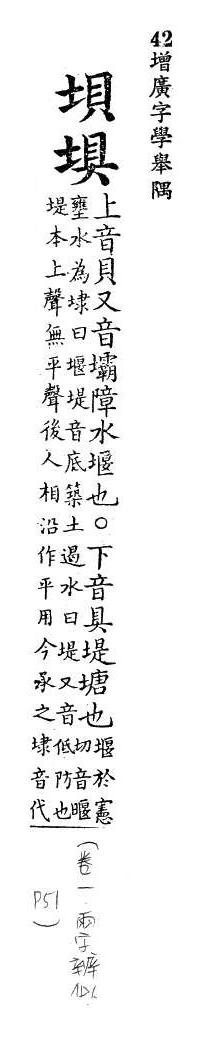 42增廣字學舉隅
垻
埧
上音貝又音壩障水堰也○下音具堤塘也堰於憲切音
壅水為埭曰堰堤音底築土遏水曰堤又音低防也
堤本上聲無平聲後人相沿作平用今承之埭音代
(卷一 兩字辨似
P51)